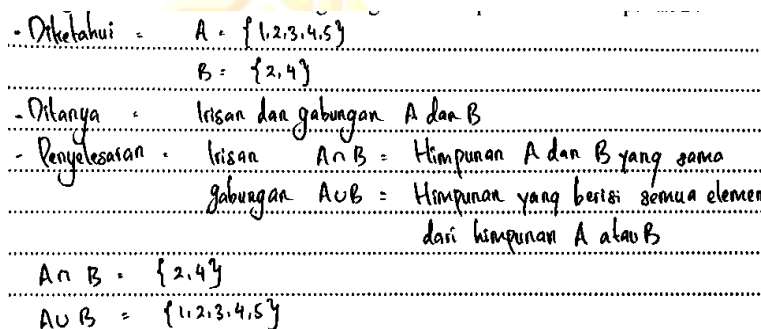 - Diketahui = A = {1,2,3,4,5}
B = {2,4}
- Ditanya = Irisan dan gabungan A dan B
- Penyelesaian = Irisan A∩B = Himpunan A dan B yang sama
gabungan A∪B = Himpunan yang berisi semua elemen
dari himpunan A atau B
A∩B = {2,4}
A∪B = {1,2,3,4,5}